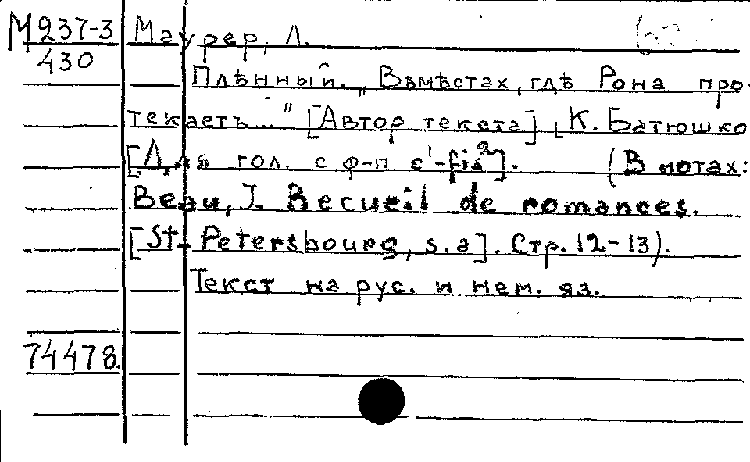 М237-3 Маурер, Л.
430
Плѣнный. „Въмѣстах, гдѣ Рона про-
текаетъ..." [Автор текста] К. Батюшко
[Для гол. с ф-п c'-fis²]. (В нотах:
Beau, J. Recueil de romances.
[St. Petersbourg, s.a]. Стр. 12-13).
Текст на рус. и нем. яз.
74478.